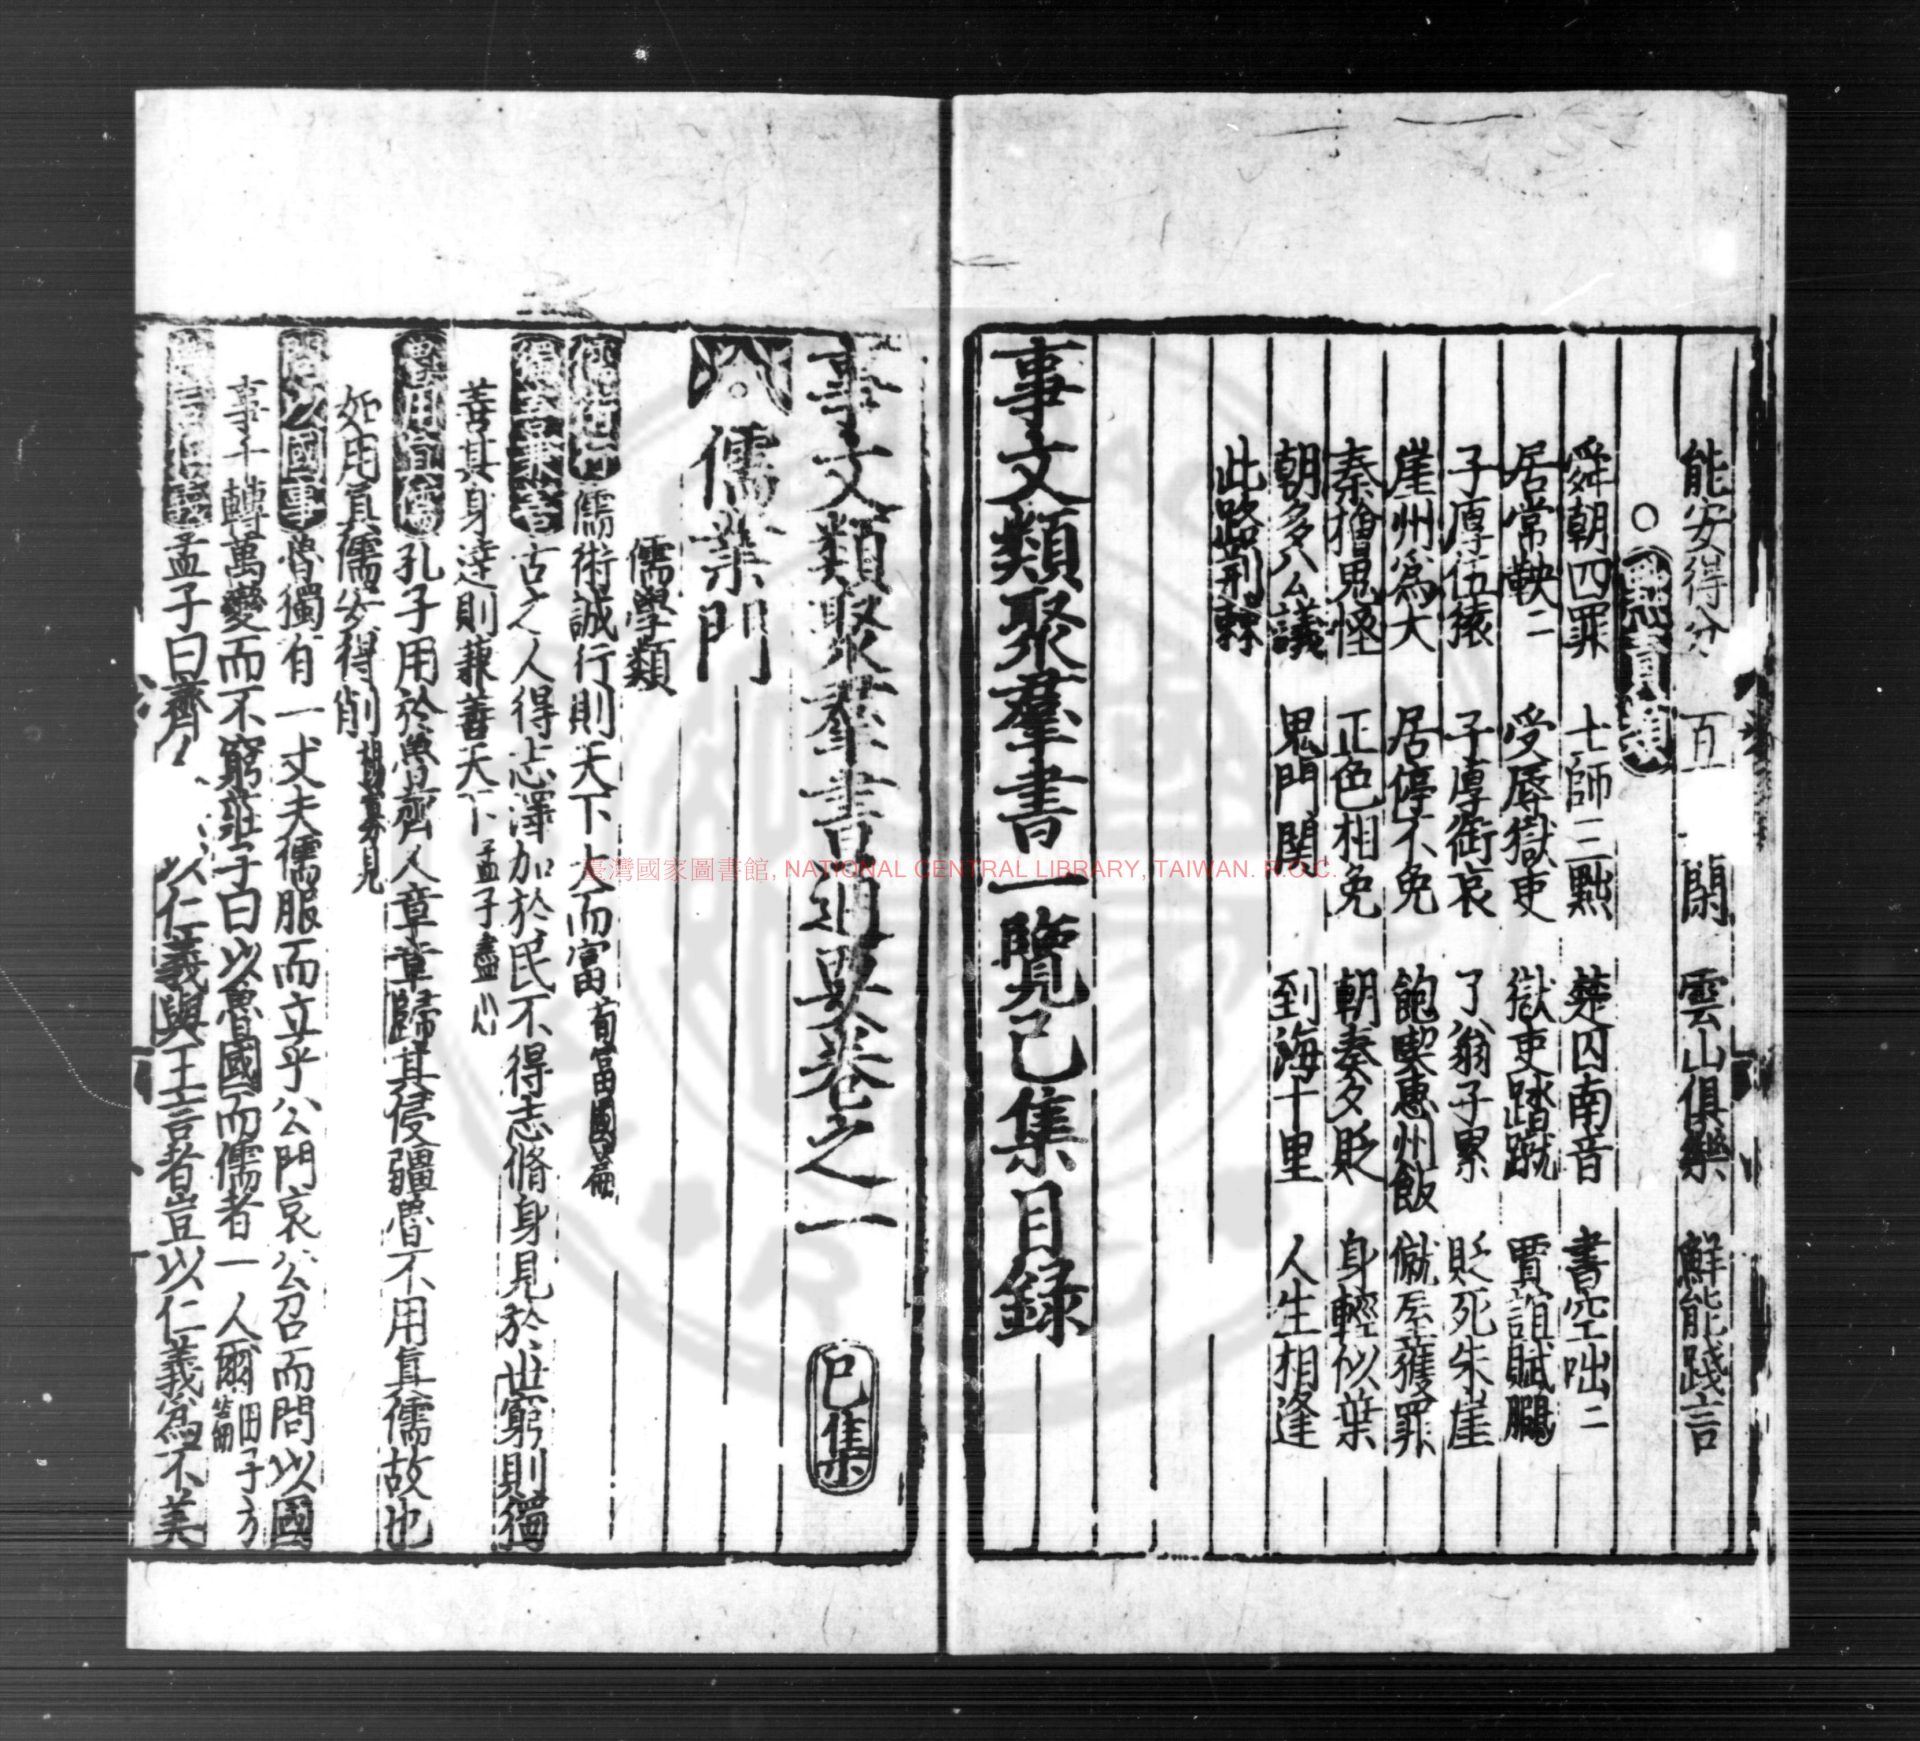 能安得分　閑　雲山俱樂　鮮能踐言
○黜責類
舜朝四罪　士師三黜　楚囚南音　書空咄二
居常鞅二　受辱獄吏　獄吏踏蹴　賈誼賦鵬
子厚伍猿　子厚銜哀　了翁子累　貶死朱崖
崖州為大　居停不免　飽喫惠州飯　僦屋獲罪
秦檜鬼怪　正色相免　朝奏夕貶　身輕似葉
朝多公議　鬼門關　到海十里　人生相逢
此路荊棘
事文類聚群書一覽己集目錄
事文類聚群書通要卷之一　巳集
儒業門
儒學類
儒術行　儒術誠行則天下大而富　荀富國篇
獨善兼善　古之人得志澤加於民不得志脩身見於世窮則獨
善其身達則兼善天下　孟子盡心
魯用真儒　孔子用於魯齊人章章歸其侵疆魯不用真儒故也
如用真儒安得削
問以國事　魯獨有一丈夫儒服而立乎公門哀公召而問以國
事千轉萬變而不窮莊子曰以魯國而儒者一人爾　田子方
孟子曰齊人　以仁義與王言者豈以仁義為不美
臺灣國家圖書館, NATIONAL CENTRAL LIBRARY, TAIWAN. R.O.C.